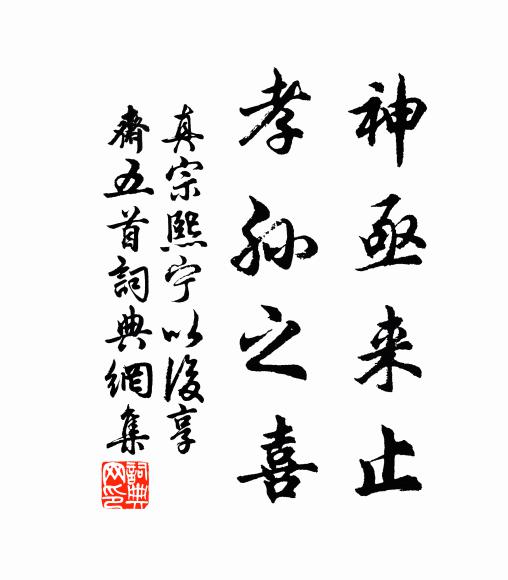 神亟来止
孝孙之喜
真宗熙宁以後享
齋五首詞典網集
詞典网印